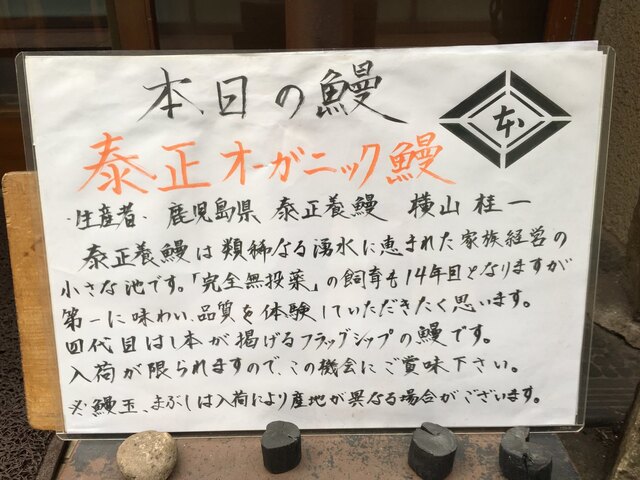 本日の鰻
本
泰正オーガニック鰻
・生産者・ 鹿児島県 泰正養鰻 横山桂一
泰正養鰻は類稀なる湧水に恵まれた家族経営の
小さな池です。「完全無投薬」の飼育も14年目となりますが
第一に味わい、品質を体験していただきたく思います。
四代目はし本が掲げるフラッグシップの鰻です。
入荷が限られますので、この機会にご賞味下さい。
※鰻玉、まぶしは入荷により産地が異なる場合がございます。